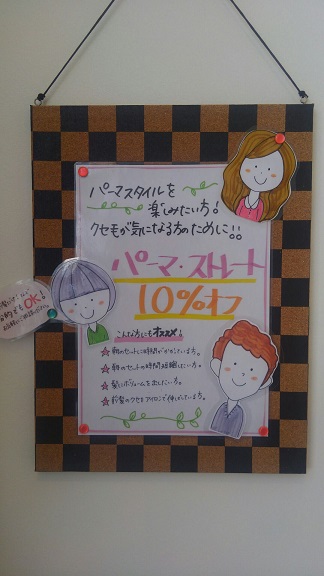 パーマスタイルを
楽しみたい方!
クセもが気になる方のために!!
パーマ・ストレート
10%オフ
こんな方にもオススメ!
★ 朝のセットに時間がかかっている方。
★ 朝のセットの時間短縮したい方。
★ 髪にボリュームを出したい方。
★ 前髪のクセをアイロンで伸ばしている方。
OK!